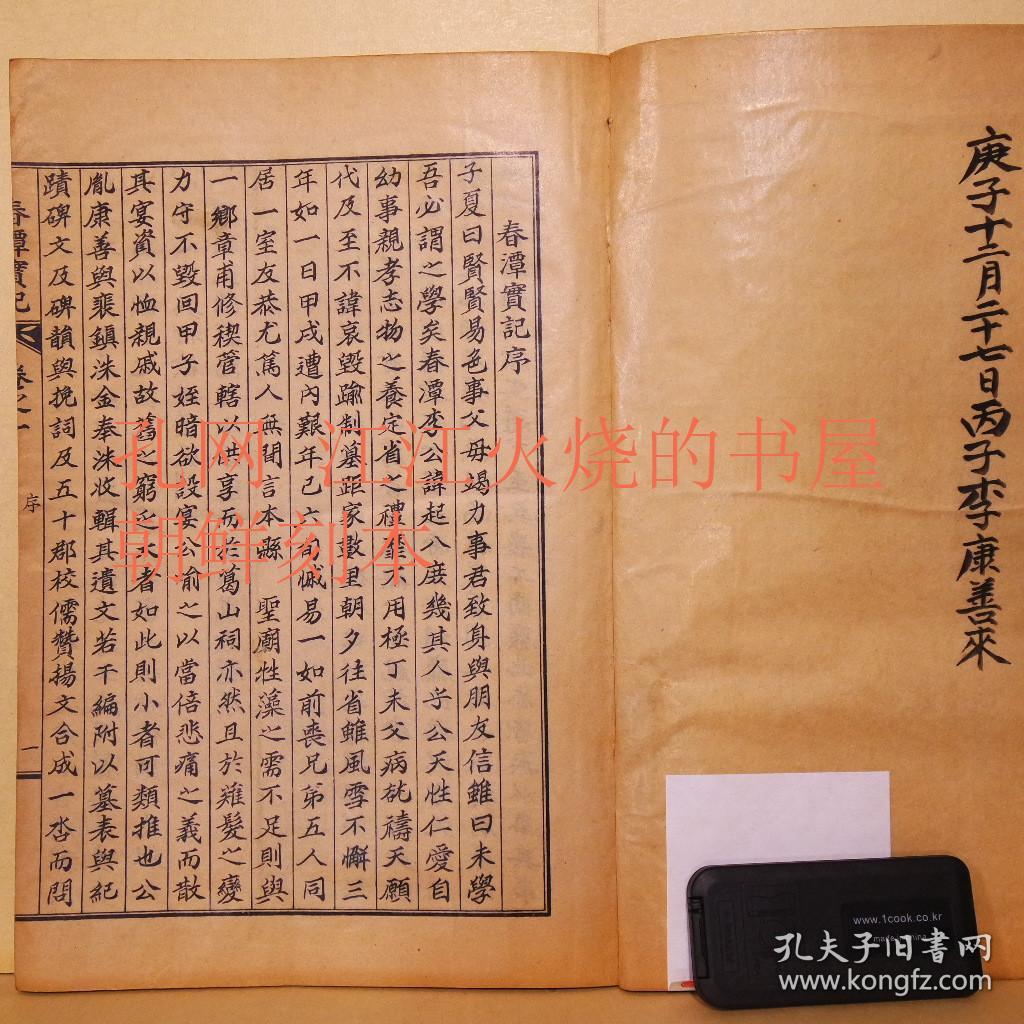 庚子十二月二十七日丙子李康善來
春潭實記序
子夏曰賢賢易色事父母竭力事君致身與朋友信雖曰未學
吾必謂之學矣春潭李公諱起八庶幾其人乎公天性仁愛自
幼事親孝志物之養定省之禮靡不用極丁未父病祝禱天願
代及至不諱哀毀踰制墓距家數里朝夕往省雖風雪不懈三
年如一日甲戌遭內艱年已六旬慽易一如前喪兄弟五人同
居一室友恭尤篤人無間言本縣 聖廟牲藻之需不足則與
一鄉章甫修稧管轄以供享而於葛山祠亦然且於薙髮之變
力守不毀回甲子姪暗欲設宴公喻之以當倍悲痛之義而散
其宴資以恤親戚故舊之窮乏大者如此則小者可類推也公
胤康善與裴鎮洙金奉洙收輯其遺文若干編附以墓表與紀
蹟碑文及碑韻與挽詞及五十郡校儒贊揚文合成一沓而問
春潭實記 卷之一 序 一
孔网 江江火烧的书屋
朝鲜刻本
www.1cook.co.kr
made in china
孔夫子旧书网
www.kongfz.com